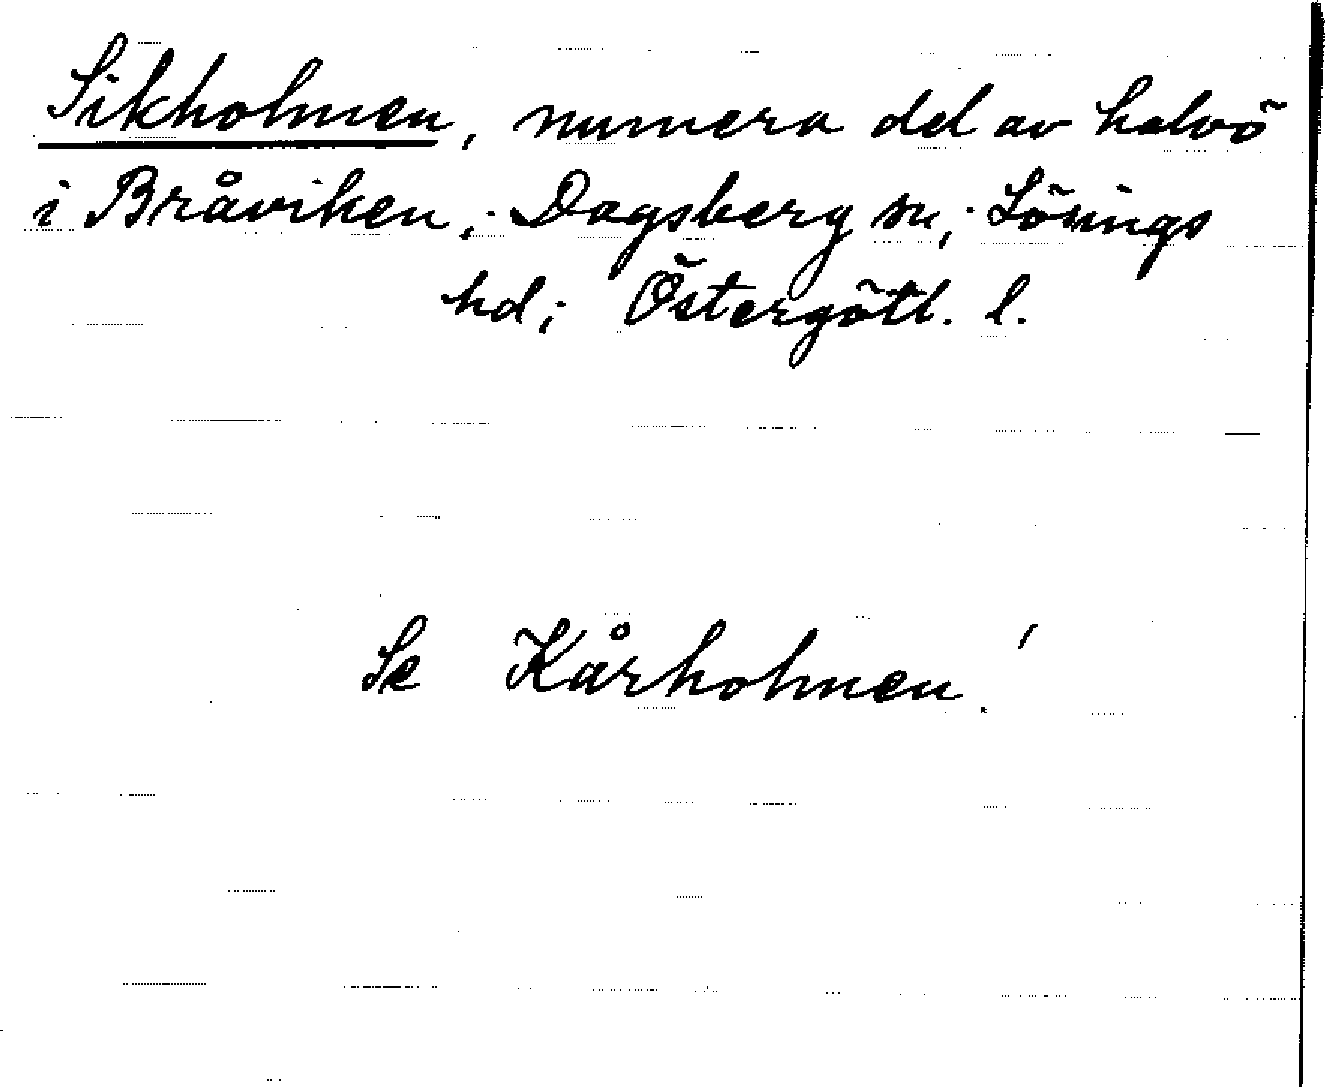 Sikholmen, numera del av halvö
i Bråviken, Dagsberg sn, Lösings
hd; Östergötl. l.
Se Kårholmen!